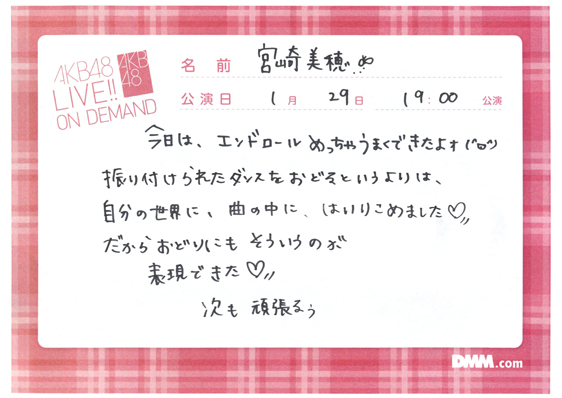 AKB48
LIVE!!
ON DEMAND
AKB
48
名 前 宮崎美穂
公演日 1月 29日 19:00 公演
今日は、エンドロールめっちゃうまくできたよォ
振り付けられたダンスをおどるというよりは、
自分の世界に、曲の中に、はいりこめました♡
だからおどりにもそういうのが
表現できた♡
次も頑張るぅ
DMM.com